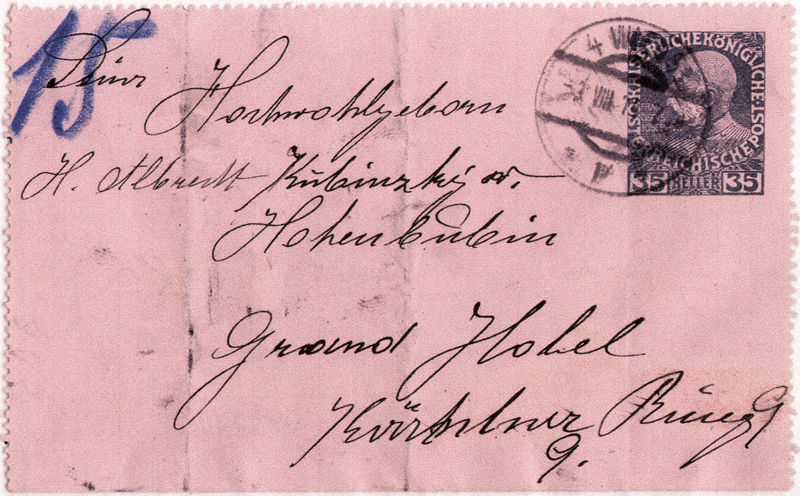 15
Euer
Hochwohlgeborn
H. Albrecht Kubinzky v.
Hohenkubin
Grand Hotel
Kärntner Ring 9
9.
4 VIII
VIII
KAISERLICHE KÖNIGLICHE
ÖSTERREICHISCHE POST
35 HELLER 35